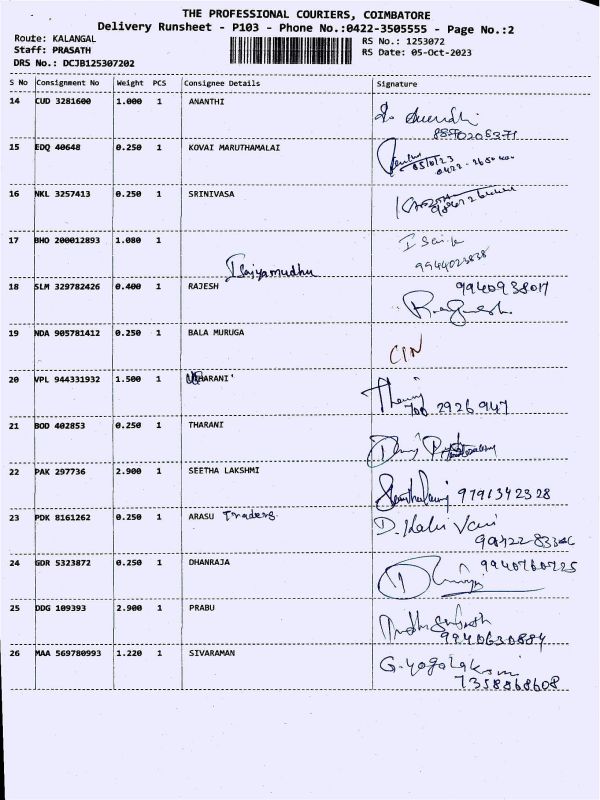 THE PROFESSIONAL COURIERS, COIMBATORE
Delivery Runsheet - P103 - Phone No.:0422-3505555 - Page No.:2
Route: KALANGAL RS No.: 1253072
Staff: PRASATH RS Date: 05-Oct-2023
DRS No.: DCJB125307202
S No Consignment No Weight PCS Consignee Details Signature
14 CUD 3281600 1.000 1 ANANTHI
15 EDQ 40648 0.250 1 KOVAI MARUTHAMALAI
16 NKL 3257413 0.250 1 SRINIVASA
17 BHO 200012893 1.080 1
9944023838
Isaiyamudhu
18 SLM 329782426 0.400 1 RAJESH 9940938017
19 NDA 905781412 0.250 1 BALA MURUGA
CIN
20 VPL 944331932 1.500 1
700 2926 947
21 BOD 402853 0.250 1 THARANI
22 PAK 297736 2.900 1 SEETHA LAKSHMI
9791342328
23 PDK 8161262 0.250 1 ARASU Traders
24 GDR 5323872 0.250 1 DHANRAJA 9940760725
25 DDG 109393 2.900 1 PRABU
9940630884
26 MAA 569780993 1.220 1 SIVARAMAN G. yogalakshmi
7358868608